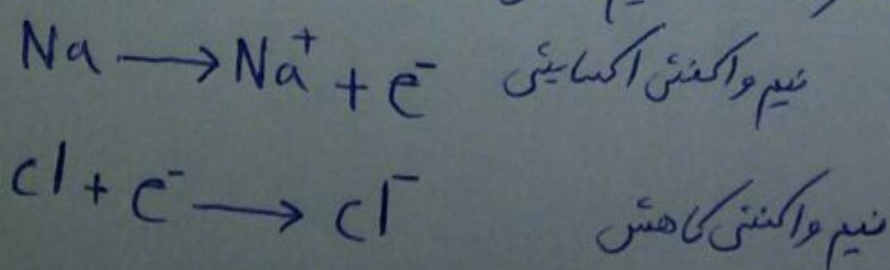 Na → Na⁺ + e⁻ نیم واکنش اکسایش
cl + e⁻ → cl⁻ نیم واکنش کاهش